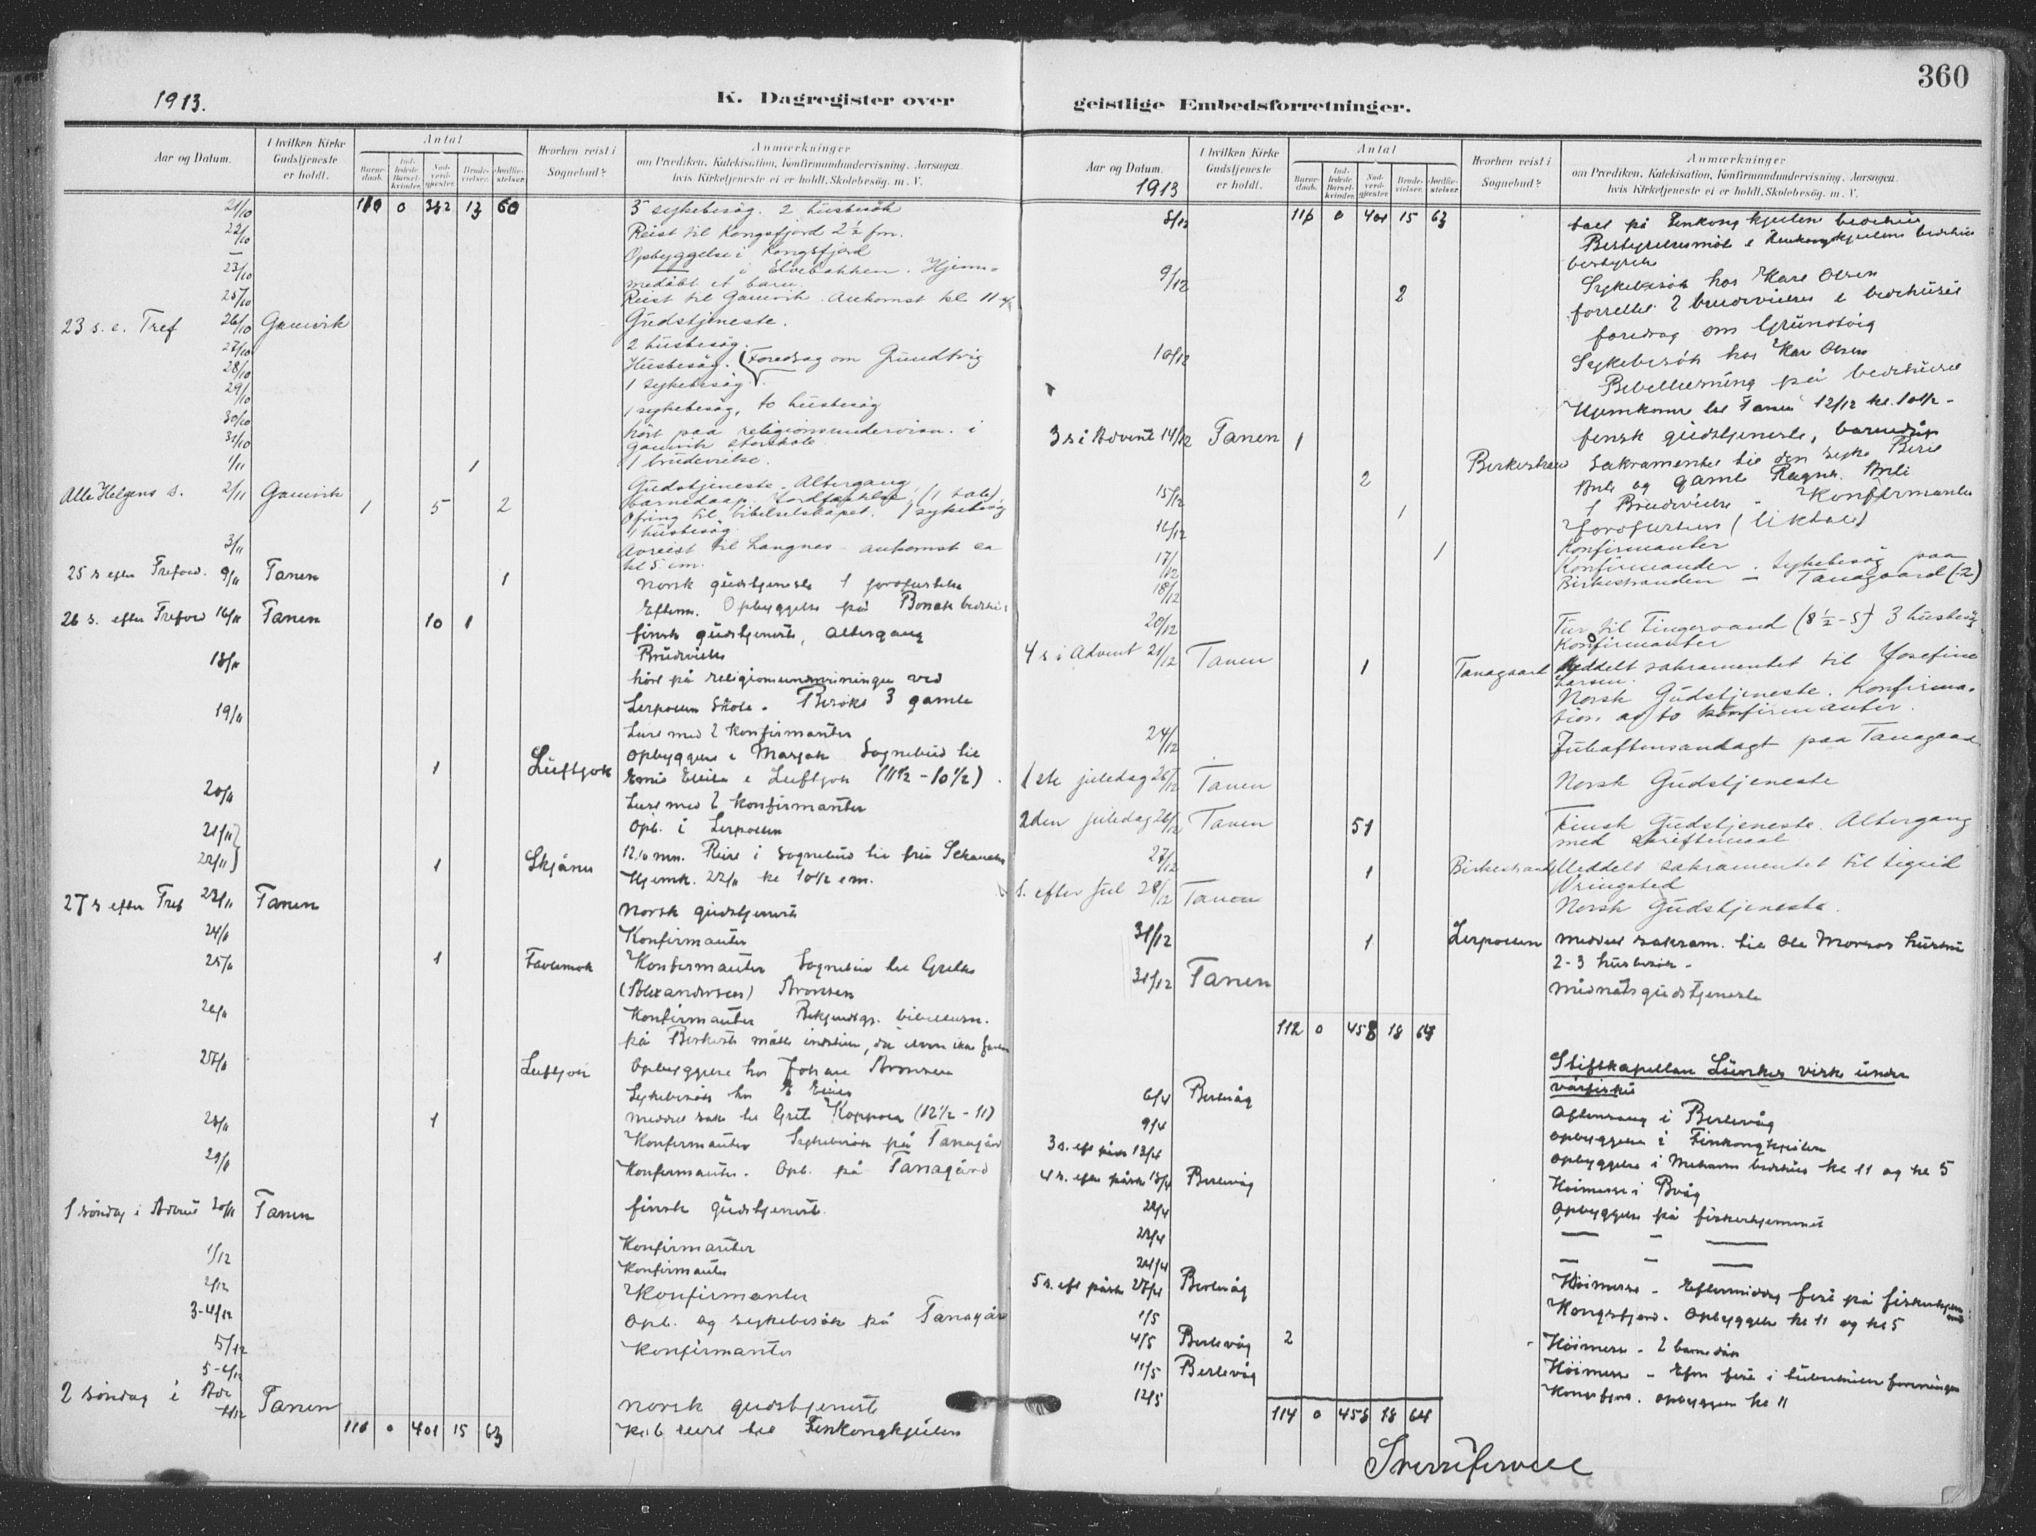 360
1913.
K. Dagregister over
geistlige Embedsforretninger.
Aar og Datum.
I hvilken Kirke Gudstjeneste er holdt.
Antal
Barne-daab.
Ind-ledede Barsel-kvinder.
Nad-verd-gjester.
Brude-vielser.
Jordfæ-stelser.
Hvorhen reist i Sognebud?
Anmærkninger
om Prædiken, Katekisation, Konfirmandundervisning, Aarsagen
hvis Kirketjeneste ei er holdt, Skolebesøg, m. V.
21/10 110 0 382 13 60 3 sykebesøg. 2 husbesøk
22/10 Reist til Kongsfjord 2½ fm.
Opbyggelse i Kongsfjord
23/10 — i Elvebakken. Hjemme-
medøbt et barn.
25/10 Reist til Gamvik. Ankomst kl 11
23 s. e. Tref 26/10 Gamvik Gudstjeneste.
27/10 2 husbesøg.
28/10 Husbesøg. (Foredrag om Grundtvig
29/10 1 sykebesøg.
30/10 1 sykebesøg, to husbesøg
31/10 hørt paa religionsundervisn. i
Gamvik storskole.
1/11 1 1 brudevielse.
Alle Helgens s. 2/11 Gamvik 1 5 2 Gudstjeneste. Altergang,
barnedaap. Jordfæstelse, (1 tale)
Ofring til bibelselskapet. 1 sykebesøg
1 husbesøg.
3/11 Avreist til Langnes - ankomst ca
kl 5 em.
25 s efter Trefold. 9/11 Tanen 1 Norsk gudstjeneste 1 jordfestelse
Efterm. Opbyggelse på Bonak bedehus
26 s. efter Trefold 16/11 Tanen 10 1 finsk gudstjeneste, altergang
Brudevielse
18/11 hørt på religionsundervisningen ved
Lerpollen skole. Besøkt 3 gamle
19/11 Læse med 2 konfirmanter
1 Luftjok opbyggelse i Masjok Sognebud til
i Luftjok (11½ - 10½).
20/11 Læse med 2 konfirmanter
Opb. i Lerpollen
21/11
22/11 1 Skjånes Reise i sognebud til fru
Hjemk. 22/11 kl 10½ em.
27 s efter Tref 23/11 Tanen Norsk gudstjeneste
24/11 Konfirmanter
25/11 1 Konfirmanter Sognebud til
(Alexandersen) Aronsen
26/11 Konfirmanter
27/11 Luftjok Opbyggelse hos Johan Aronsen
Sykebesøk hos
28/11 1 meddelt sak til Grit (12½ - 11)
Konfirmanter Sykebesøk på Tanagård
29/11 Konfirmanter. Opb. på Tanagård
1 søndag i Advent 30/11 Tanen finsk gudstjeneste.
1/12 Konfirmanter
2/12 Konfirmanter
3-4/12 Konfirmanter
5/12 Opb. og sykebesøk på Tanagård
5-6/12 Konfirmanter
2 søndag i Adv 7/12 Tanen norsk gudstjeneste
110 0 401 15 63 Kl. 6 reist til Finkongkjeilen
Aar og Datum.
1913
I hvilken Kirke Gudstjeneste er holdt.
Antal
Barne-daab.
Ind-ledede Barsel-kvinder.
Nad-verd-gjester.
Brude-vielser.
Jordfæ-stelser.
Hvorhen reist i Sognebud?
Anmærkninger
om Prædiken, Katekisation, Konfirmandundervisning, Aarsagen
hvis Kirketjeneste ei er holdt, Skolebesøg, m. V.
8/12 110 0 401 15 63 på Finkongkjeilen bedehus
Bestyrelsesmøte i Finkongkjeilens bedehus
bestyrelse
9/12 Sykebesøk hos Kare Olsen
2 forrettet 2 brudevielser i bedehuset
foredrag om Grundtvig
10/12 Sykebesøk hos Kare Olsen
Bibellesning på bedehuset
Hjemkomst til Tanen 12/12 kl. 10½ -
3 s i Advent 14/12 Tanen 1 finsk gudstjeneste, barnedåp
2 Birkestrand Sakramentet til den syke
og gamle
15/12 1 1 Brudevielse - Konfirmanter
16/12 1 Jordfestelse (liktale)
Konfirmanter
17/12 Konfirmander. Sykebesøg paa
18/12 Birkestranden — Tanagaard (-2)
20/12 Tur til Fingervand (8½ - 5) 3 husbesøg
Konfirmanter
4 s i Advent 21/12 Tanen 1 Tanagaard Meddelt sakramentet til Josefine
Larsen.
Norsk Gudstjeneste. Konfirma-
tion af to konfirmanter.
24/12 Juleaftensandagt paa Tanagaard
1ste juledag 25/12 Tanen Norsk Gudstjeneste
2den juledag 26/12 Tanen 51 Finsk Gudstjeneste. Altergang
med skriftemaal
27/12 1 Birkestrand Meddelt sakramentet til Sigrid
Wringsted
S. efter Jul 28/12 Tanen Norsk Gudstjeneste.
31/12 1 Lerpollen meddelt sakram. til Ole hustru
2-3 husbesøk -
31/12 Tanen Midnatsgudstjeneste
112 0 458 18 64
Stiftskapellan virke under
vårfisket
6/4 Berlevåg Aftensang i Berlevåg
9/4 Opbyggelse i Finkongkjeilen
3 s. eft påske 12/4 Opbyggelse i Mehavn bedehus kl 11 og kl 5
4 s. efter påske 13/4 Berlevåg Høimesse i Bvåg
22/4 Opbyggelse på fiskerhjemmet
23/4 — — —
24/4 — — —
5 s. eft påske 27/4 Berlevåg Høimesse - Eftermiddag fest på fiskerhjemmet
1/5 Kongsfjord. Opbyggelse kl 11 og kl 5
4/5 Berlevåg 2 Høimesse - 2 barnedåp
11/5 Berlevåg Høimesse - Efm fest i foreningen
12/5 Kongsfjord. opbyggelse kl 11
114 0 458 18 64